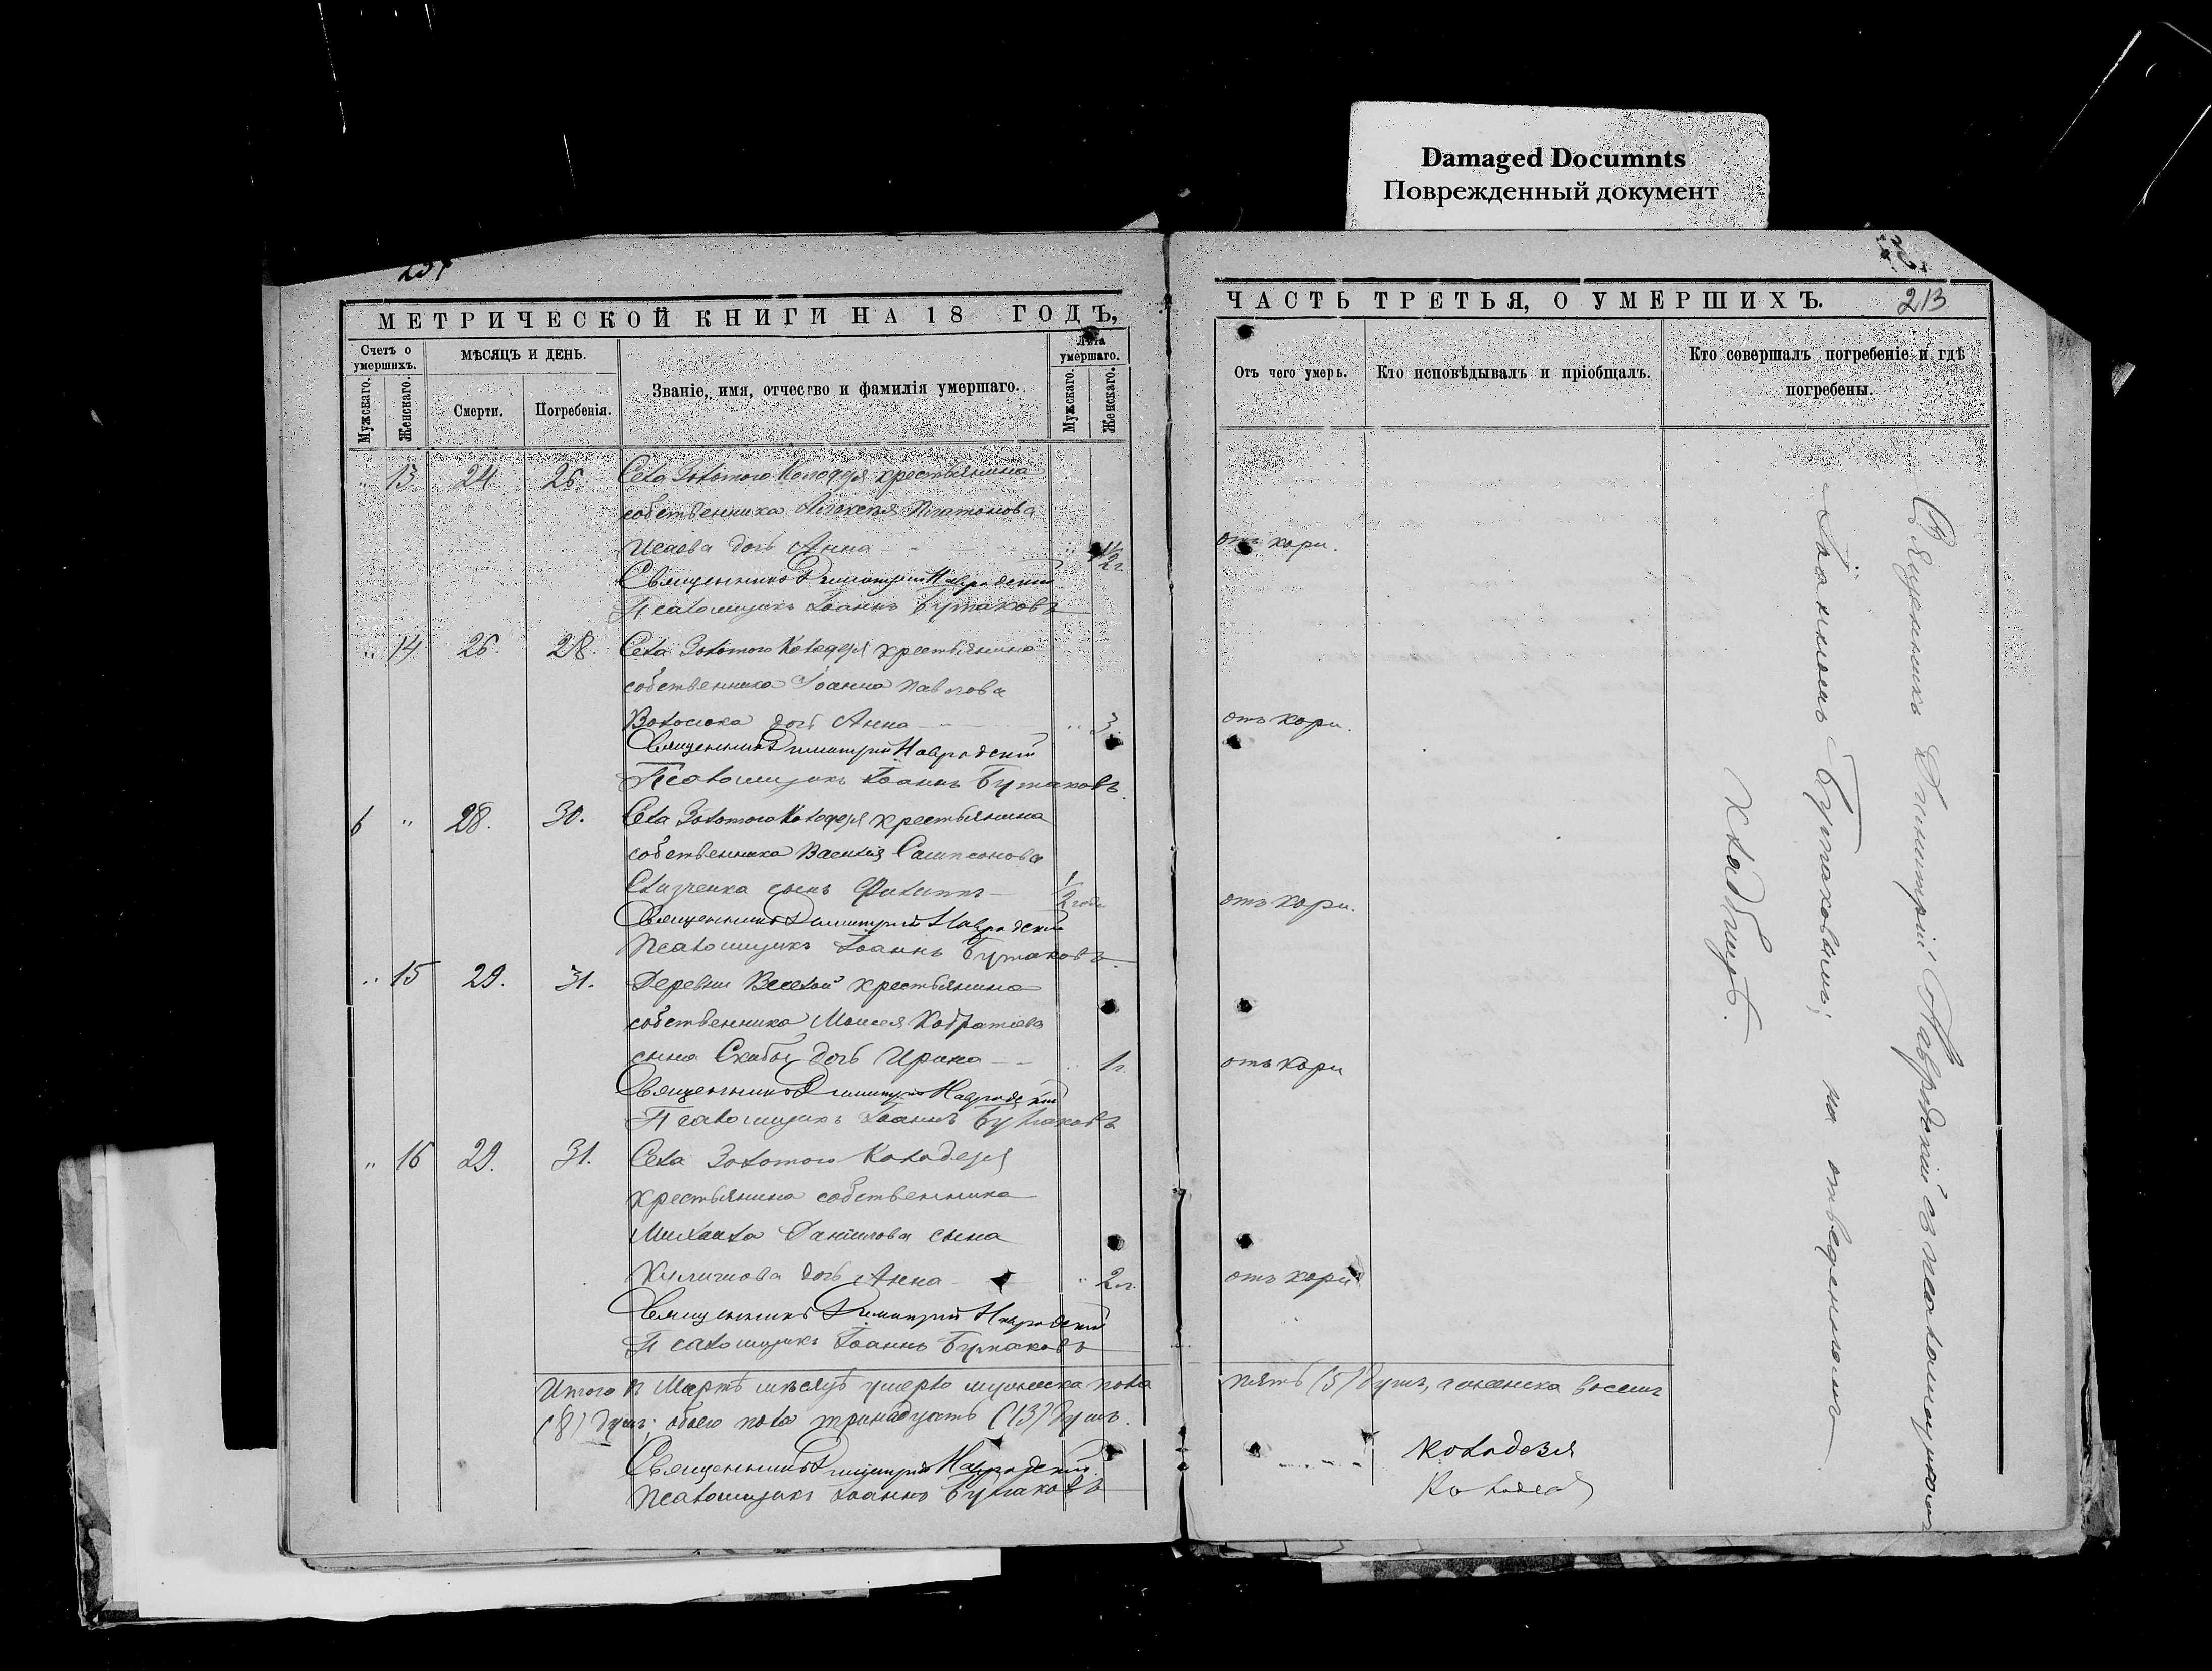 Damaged Documnts
Поврежденный документ
МЕТРИЧЕСКОЙ КНИГИ НА 18 ГОДЪ,
Счетъ о умершихъ.
Мужскаго.
Женскаго.
МѢСЯЦЪ И ДЕНЬ.
Смерти.
Погребенія.
Званіе, имя, отчество и фамилія умершаго.
Лѣта умершаго.
Мужскаго.
Женскаго.
" 13. 24. 26. Села Золотого Колодезя крестьянина
собственника Алексѣя Платонова
Исаева дочь Анна " 1/2 г
Священникъ Димитрій Навродскій
Псаломщикъ Іоаннъ Бутаковъ
" 14 26. 28. Села Золотого Колодезя крестьянина
собственника Іоанна Павлова
Волошка дочь Анна " 3
Священникъ Димитрій Навродскій
Псаломщикъ Іоаннъ Бутаковъ.
6 " 28. 30. Села Золотого Колодезя крестьянина
собственника Василія Сампсонова
сынъ Филиппъ 1/2 года
Священникъ Димитрій Навродскій
Псаломщикъ Іоаннъ Бутаковъ.
" 15 29. 31. Деревни Веселой крестьянина
собственника Моисея
сына Скибы дочь Ирина 1 г.
Священникъ Димитрій Навродскій
Псаломщикъ Іоаннъ Бутаковъ
" 16 29. 31. Села Золотого Колодезя
крестьянина собственника
Михаила Даніилова сына
дочь Анна " 2 г.
Священникъ Димитрій Навродскій
Псаломщикъ Іоаннъ Бутаковъ
Итого въ Мартѣ мѣсяцѣ умерло мужеска пола
(8) душъ; обоего пола тринадцать (13) душъ.
Священникъ Димитрій Навродскій
Псаломщикъ Іоаннъ Бутаковъ
ЧАСТЬ ТРЕТЬЯ, О УМЕРШИХЪ. 213
Отъ чего умеръ.
Кто исповѣдывалъ и пріобщалъ.
Кто совершалъ погребеніе и гдѣ погребены.
отъ кори.
отъ кори.
отъ кори.
отъ кори
отъ кори
Священникъ Димитрій Навродскій съ псаломщикомъ
Іоанномъ Бутаковымъ; на отведенномъ
кладбищѣ.
пять (5) душъ, а женска восемь
Колодезя